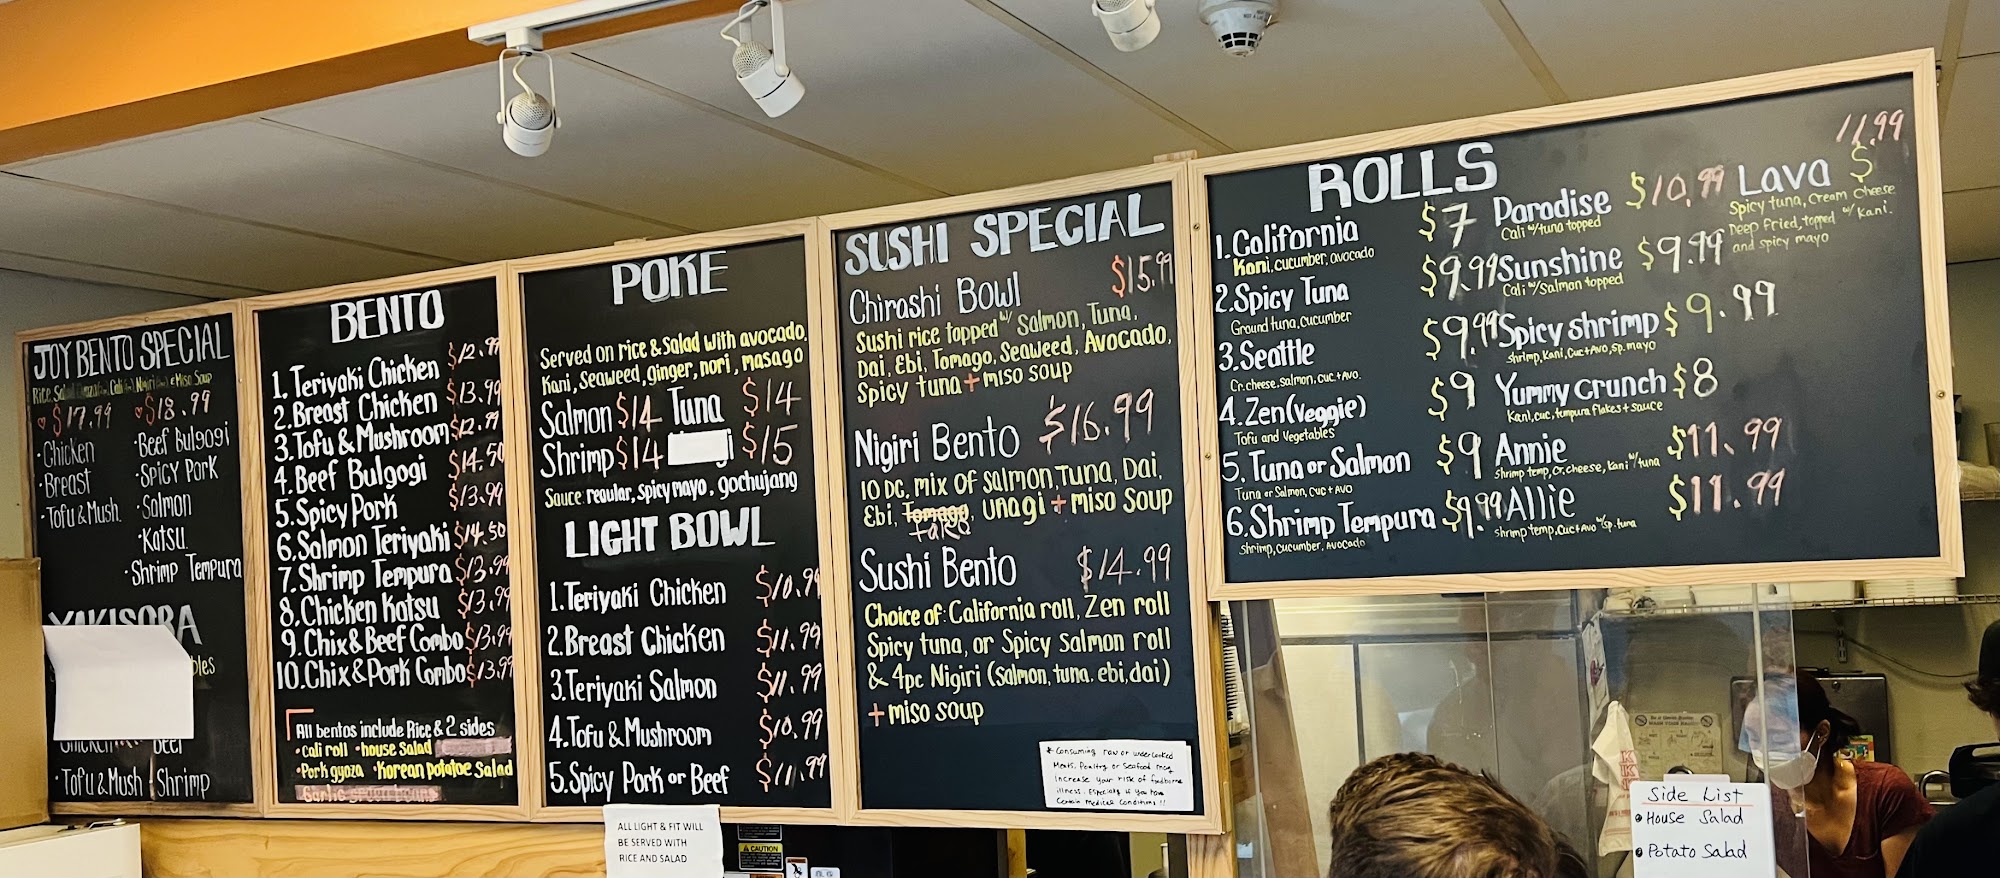 JOY BENTO SPECIAL
Rice, Salad, Gyoza, Cali, Nigiri & Miso Soup
$17.99
· Chicken
· Breast
· Tofu & Mush.
$18.99
· Beef Bulgogi
· Spicy Pork
· Salmon
· Katsu
· Shrimp Tempura
YAKISOBA
bles
Chicken Beef
· Tofu & Mush · Shrimp
BENTO
1. Teriyaki Chicken $12.99
2. Breast Chicken $13.99
3. Tofu & Mushroom $12.99
4. Beef Bulgogi $14.50
5. Spicy Pork $13.99
6. Salmon Teriyaki $14.50
7. Shrimp Tempura $13.99
8. Chicken Katsu $13.99
9. Chix & Beef Combo $13.99
10. Chix & Pork Combo $13.99
All bentos include Rice & 2 sides
· Cali roll · house Salad
· Pork gyoza · Korean potatoe Salad
POKE
Served on rice & Salad with avocado,
Kani, Seaweed, ginger, nori, masago
Salmon $14 Tuna $14
Shrimp $14 i $15
Sauce: regular, spicy mayo, gochujang
LIGHT BOWL
1. Teriyaki Chicken $10.99
2. Breast Chicken $11.99
3. Teriyaki Salmon $11.99
4. Tofu & Mushroom $10.99
5. Spicy Pork or Beef $11.99
ALL LIGHT & FIT WILL
BE SERVED WITH
RICE AND SALAD
CAUTION
SUSHI SPECIAL
Chirashi Bowl $15.99
Sushi rice topped w/ Salmon, Tuna,
Dai, Ebi, Tomago, Seaweed, Avocado,
Spicy tuna + miso soup
Nigiri Bento $16.99
10 pc, mix of salmon, Tuna, Dai,
Ebi, Tomago, Unagi + miso soup
Tako
Sushi Bento $14.99
Choice of: California roll, Zen roll
Spicy tuna, or Spicy Salmon roll
& 4pc Nigiri (Salmon, tuna, ebi, dai)
+ miso soup
* Consuming raw or undercooked
Meats, Poultry or Seafood may
Increase your risk of foodborne
illness. Especially if you have
Certain Medical Conditions !!
ROLLS
1. California $7
Kani, cucumber, avocado
2. Spicy Tuna $9.99
Ground tuna, cucumber
3. Seattle $9.99
Cr. cheese, salmon, cuc + Avo.
4. Zen (veggie) $9
Tofu and Vegetables
5. Tuna or Salmon $9
Tuna or Salmon, Cuc + Avo
6. Shrimp Tempura $9.99
Shrimp, Cucumber, Avocado
Paradise $10.99
Cali w/ tuna topped
Sunshine $9.99
Cali w/ Salmon topped
Spicy shrimp $9.99
shrimp, Kani, Cuc + Avo, sp. mayo
Yummy Crunch $8
Kani, cuc, tempura flakes + sauce
Annie $11.99
Shrimp temp, Cr. cheese, Kani w/ tuna
Allie $11.99
Shrimp temp, Cuc + Avo w/ sp. tuna
11.99
Lava $
Spicy tuna, Cream Cheese
Deep Fried, topped w/ Kani.
and spicy mayo
Side List
House Salad
Potato Salad